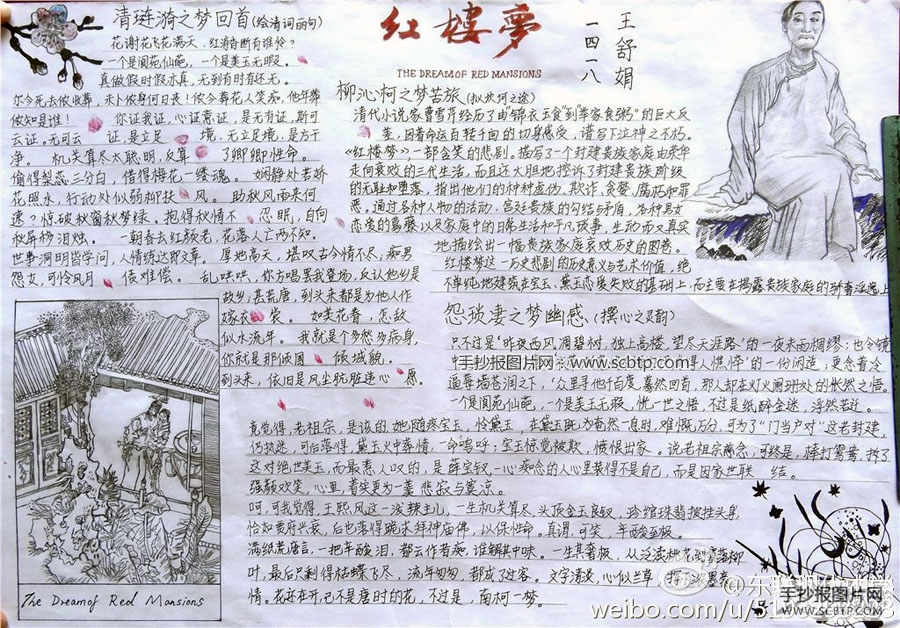 清琏漪之梦回首(给清词丽句)
花谢花飞花满天，红消香断有谁怜？
一个是阆苑仙葩，一个是美玉无瑕。
真做假时假亦真，无到有时有还无。
尔今死去侬收葬，未卜侬身何日丧！侬今葬花人笑痴，他年葬
侬知是谁！你证我证，心证意证，是无有证，斯可
云证。无可云证，是立足境，无立足境，是方干
净。机关算尽太聪明，反算了卿卿性命。
偷得梨蕊三分白，借得梅花一缕魂。娴静处若娇
花照水，行动处似弱柳扶风。助秋风雨来何
速？惊破秋窗秋梦绿。抱得秋情不忍眠，自向
秋屏移泪烛。一朝春去红颜老，花落人亡两不知。
世事洞明皆学问，人情练达即文章。厚地高天，堪叹古今情不尽，痴男
怨女，可怜风月债难偿。乱哄哄，你方唱罢我登场，反认他乡是
故乡；甚荒唐，到头来都是为他人作
嫁衣裳。如美花眷，怎敌
似水流年。我就是个多愁多病身，
你就是那倾国倾城貌。
到头来，依旧是风尘肮脏违心愿。
The Dream of Red Mansions
红楼夢
THE DREAM OF RED MANSIONS
王舒娟
一四一八
柳沁柯之梦苦旅
清代小说家曹雪芹经历了由"锦衣玉食"到"举家食粥"的巨大反
差，因着命运百转千回的切身感受，谱写下泣神之不朽。
《红楼梦》，一部含笑的悲剧。描写了一个封建贵族家庭由荣华
走向衰败的三代生活，而且还大胆地控诉了封建贵族阶级
的无耻和堕落，指出他们的种种虚伪、欺诈、贪婪、腐朽和罪
恶。通过各种人物的活动，宫廷贵族的勾结与矛盾，各种男女
恋爱的葛藤以及家庭中的日常生活和平凡故事，生动而又真实
地描绘出一幅贵族家庭衰败历史的图卷。
红楼梦这一历史悲剧的历史意义与艺术价值，绝
不单纯地建筑在宝玉、黛玉恋爱失败的基础上，而主要在揭露贵族家庭的骄奢淫逸上
怨琐妻之梦幽感
只不过是"昨夜西风凋碧树，独上高楼，望尽天涯路"的一夜未雨绸缪；也令镜
人憔悴"的一份闲造，更念着冷
遁辱墙苍润之下，"众里寻他千百度，蓦然回首，那人却在灯火阑珊处的怅然之悟。
一个是阆苑仙葩，一个是美玉无瑕，恍一世之悟，不过是纸醉金迷，浮然若迁。
竟觉得，老祖宗，是该的，她随疼宝玉，怜黛玉，在黛玉
仍执迷，可后落得，黛玉火中葬情，一命呜呼；宝玉惊觉被欺，愤恨出家。说老祖宗慈念，可终是，棒打鸳鸯，拆了
这对绝世美玉，而最惹人叹的，是薛宝钗，一心痴念的人心里装得不是自己，而是因家世联结。
强颜欢笑，心里，着实更为一羞悲寂与寞凉。
呵，可我觉得，王熙凤这一泼辣主儿，一生机关算尽，头顶金玉良钗，
后也落得跪求拜神庙佛，以保性命。真谓，可笑，辛酸至极。
满纸荒唐言，一把辛酸泪，都云作者痴，谁解其中味。
叶，最后只剩得枯蝶飞尽，流年匆匆，都成了过客。文字清爽，心似兰草，
情。花亦在开，已不是唐时的花，不过是，南柯一梦。
手抄报图片网-www.scbtp.com
weibo.com/u/5
手抄报图片网
WWW.SCBTP.COM